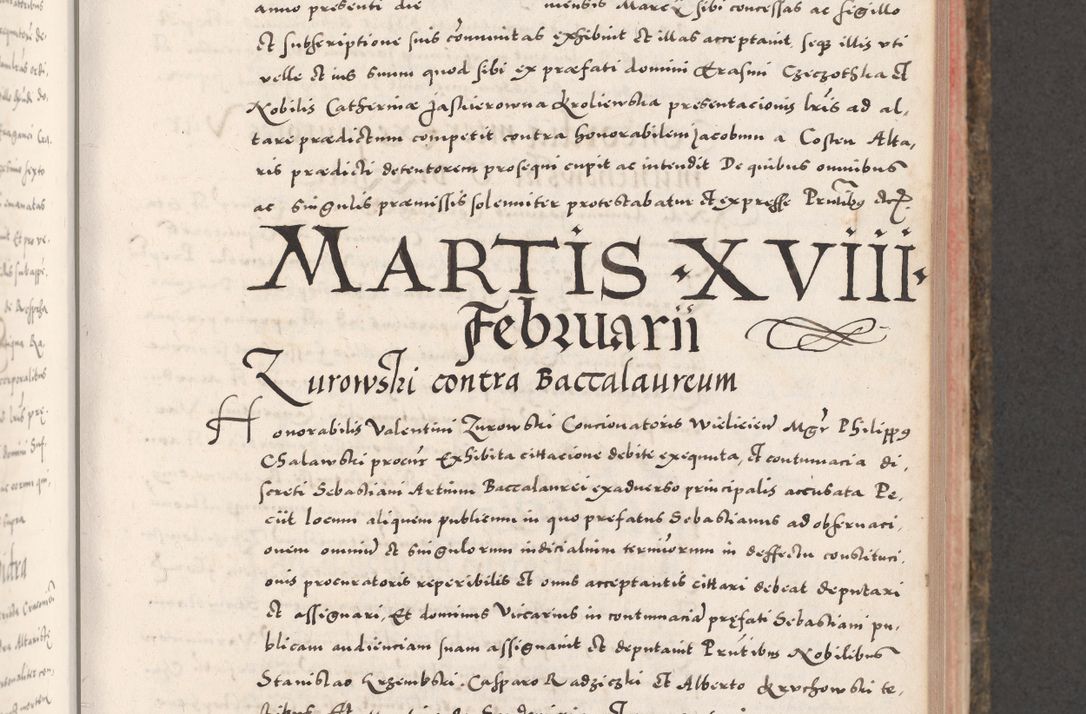 anno presenti die mensis Marcij sibi concessas ac sigillo
et subscriptione suis comunitas exhibuit et illas acceptavit, seqz illis uti
velle et ius suum quod sibi ex præfati domini Erasmi Czeczothka et
Nobilis Catherinæ Jaskierowna Kroliewska presentacionis lris ad al,
tare prædictum competit contra honorabilem Jacobum a Costen Alta,
ris prædicti detentorem prosequi cupit ac intendit De quibus omnibus
ac singulis præmissis solemniter protestabatur et expresse Prntibus etc
MARTIS · XVIII ·
Februarii
Zurowski contra Baccalaureum
Honorabilis Valentini Zurowski Concionatoris Wielicien Mgr Philippus
Chalawski procur Exhibita cittacione debite exequuta, et contumacia di,
screti Sebastiani Artium Baccalaurei exadverso principalis accusata Pe,
ciit locum aliquem publicum in quo prefatus Sebastianus ad observaci,
onem omniu et singulorum iudicialium terminorum in deffectu constituci,
onis procuratoris reperibilis et onus acceptantis cittari debeat deputari
et assignari, Et dominus Viccarius in contumacia prefati Sebastiani pu,
blicam audienciam suam assignavit et deputavit Prntibus Nobilibus
Stanislao Krzembski, Casparo Radziczki et Alberto Kruchowski te,